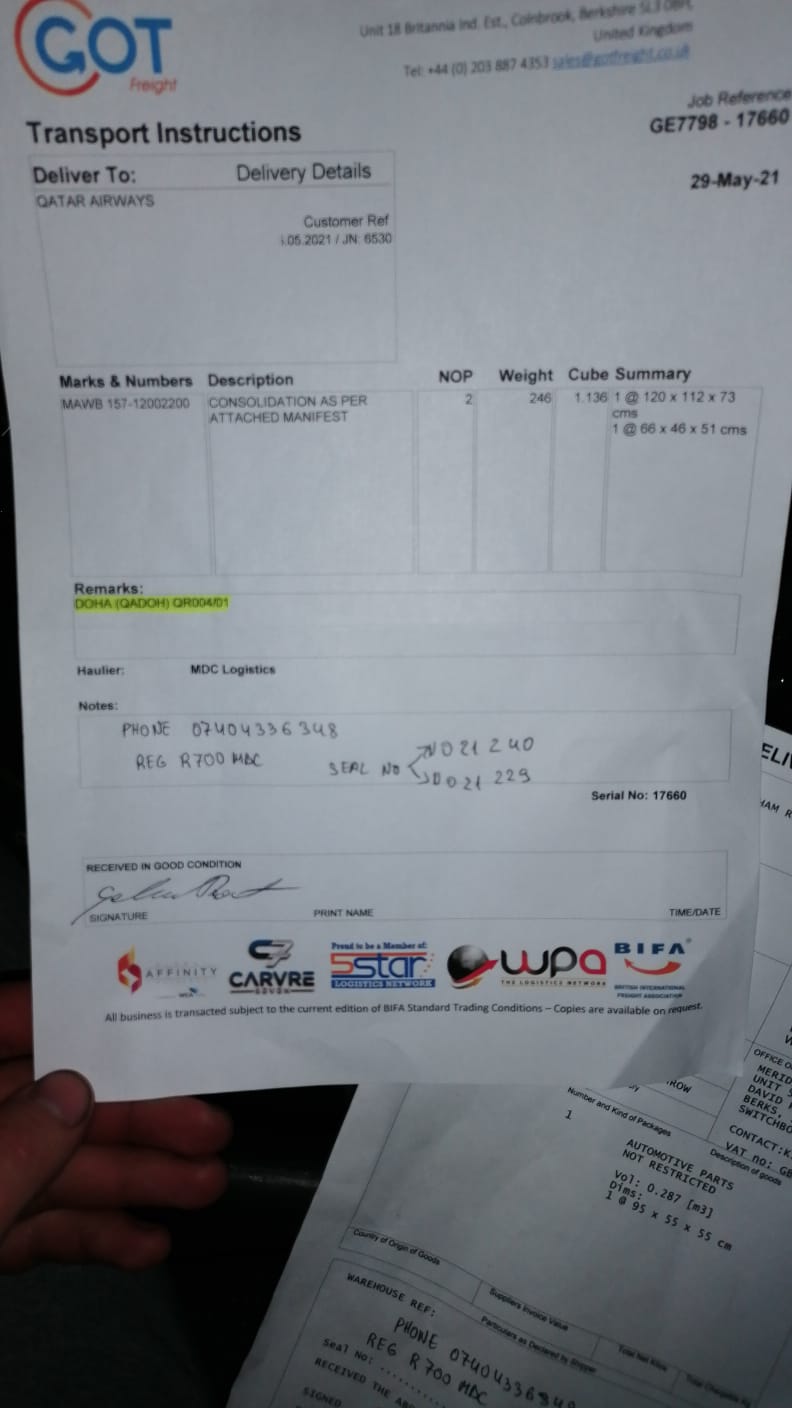 GOT
Freight
Unit 18 Britannia Ind. Est., Colnbrook, Berkshire SL3
United Kingdom
Tel: +44 (0) 203 887 4353 sales@gotfreight.co.uk
Job Reference
GE7798 - 17660
29-May-21
Transport Instructions
Deliver To: Delivery Details
QATAR AIRWAYS
Customer Ref
.05.2021 / JN: 6530
Marks & Numbers Description NOP Weight Cube Summary
MAWB 157-12002200 CONSOLIDATION AS PER 2 246 1.136 1 @ 120 x 112 x 73
ATTACHED MANIFEST cms
1 @ 66 x 46 x 51 cms
Remarks:
DOHA (QADOH) QR004/01
Haulier: MDC Logistics
Notes:
PHONE 07404336348
REG R700 MDC
SEAL NO 021 240
021 229
Serial No: 17660
RECEIVED IN GOOD CONDITION
SIGNATURE PRINT NAME TIME/DATE
AFFINITY
CARVRE
SEVEN
Proud to be a Member of:
5star
LOGISTICS NETWORK
wpa
THE LOGISTICS NETWORK
BIFA
BRITISH INTERNATIONAL
FREIGHT ASSOCIATION
All business is transacted subject to the current edition of BIFA Standard Trading Conditions – Copies are available on request.
ELIV
HAM R
ROW
OFFICE O
MERID
UNIT
DAVID
BERKS,
SWITCHBO
CONTACT:K
VAT no: GB
Number and Kind of Packages
Description of goods
1
AUTOMOTIVE PARTS
NOT RESTRICTED
Vol: 0.287 [m3]
Dims:
1 @ 95 x 55 x 55 cm
Country of Origin of Goods
Suppliers Invoice Value
Particulars as Declared by Shipper
Total Nett Kilos
WAREHOUSE REF:
PHONE 07404336348
REG R700 MDC
Seal No:
RECEIVED THE AB
SIGNED